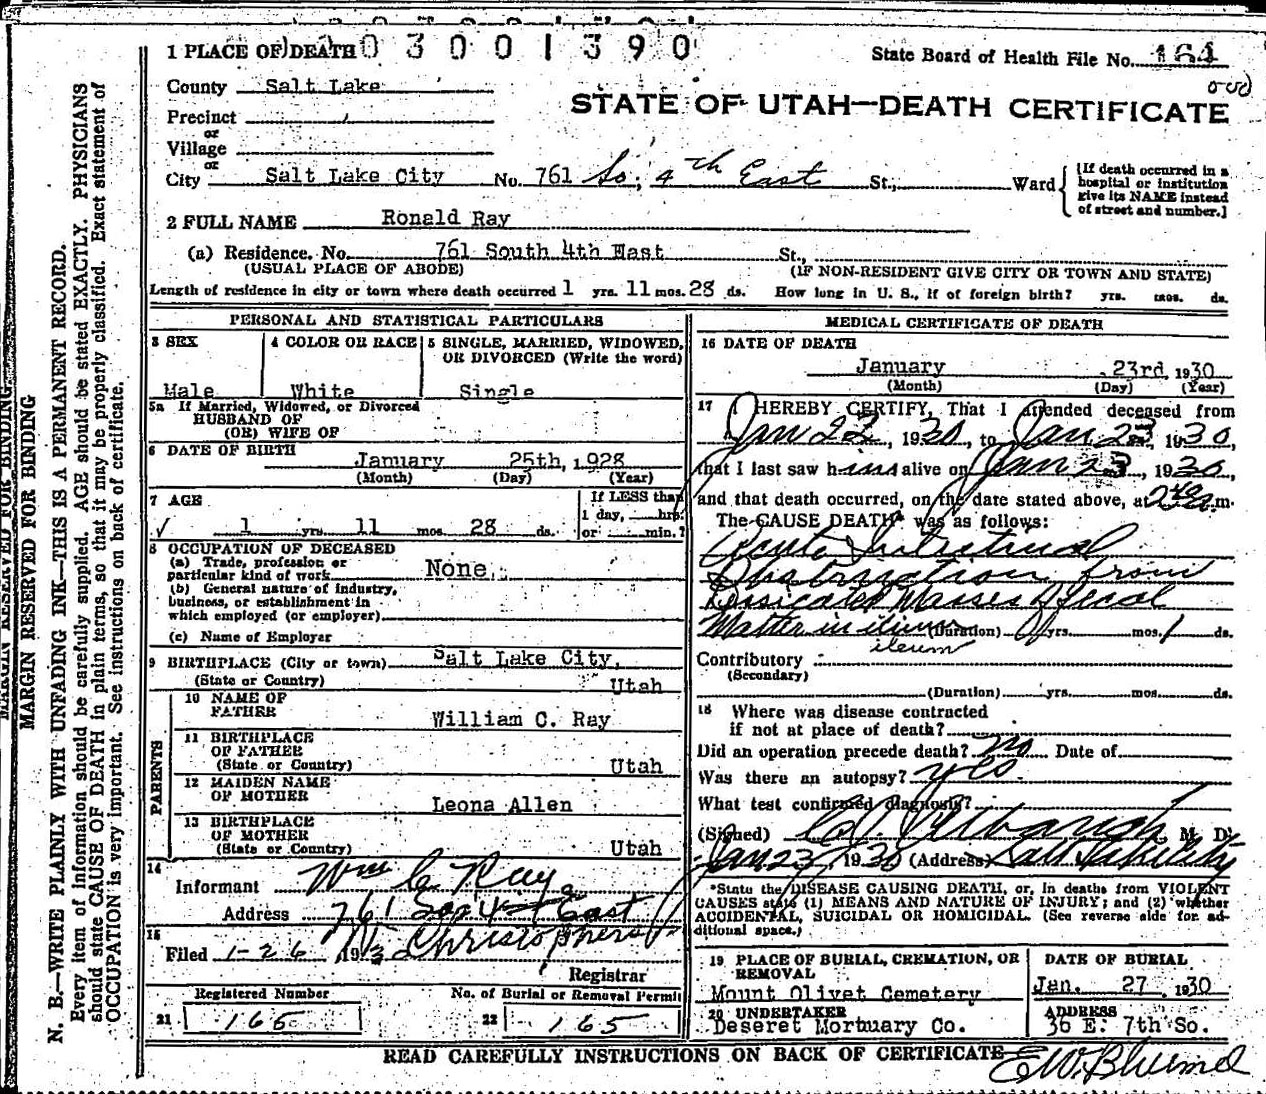 3 0 0 1 3 9 0
1 PLACE OF DEATH
State Board of Health File No. 164
County Salt Lake
STATE OF UTAH—DEATH CERTIFICATE
Precinct
or
Village
or
City Salt Lake City No. 761 So. 4th East St., Ward
[If death occurred in a hospital or institution give its NAME instead of street and number.]
2 FULL NAME Ronald Ray
(a) Residence. No. 761 South 4th East St.,
(USUAL PLACE OF ABODE) (IF NON-RESIDENT GIVE CITY OR TOWN AND STATE)
Length of residence in city or town where death occurred 1 yrs. 11 mos. 28 ds. How long in U. S., if of foreign birth? yrs. mos. ds.
PERSONAL AND STATISTICAL PARTICULARS
3 SEX
Male
4 COLOR OR RACE
White
5 SINGLE, MARRIED, WIDOWED,
OR DIVORCED (Write the word)
Single
5a If Married, Widowed, or Divorced
HUSBAND OF
(OR) WIFE OF
6 DATE OF BIRTH January 25th, 1928
(Month) (Day) (Year)
7 AGE
1 yrs. 11 mos. 28 ds.
If LESS than
1 day, hrs.
or min.?
8 OCCUPATION OF DECEASED
(a) Trade, profession or
particular kind of work None
(b) General nature of industry,
business, or establishment in
which employed (or employer)
(c) Name of Employer
9 BIRTHPLACE (City or town) Salt Lake City,
(State or Country) Utah
PARENTS
10 NAME OF
FATHER William C. Ray
11 BIRTHPLACE
OF FATHER
(State or Country) Utah
12 MAIDEN NAME
OF MOTHER Leona Allen
13 BIRTHPLACE
OF MOTHER
(State or Country) Utah
14
Informant Wm C Ray
Address 761 So 4th East
15
Filed 1-26 193
Registrar
Registered Number
21 165
No. of Burial or Removal Permit
22 165
MEDICAL CERTIFICATE OF DEATH
16 DATE OF DEATH
January 23rd, 1930
(Month) (Day) (Year)
17 I HEREBY CERTIFY, That I attended deceased from
Jan 22, 1930, to Jan 23 1930,
that I last saw him alive on Jan 23, 1930,
and that death occurred, on the date stated above, at 2 40 a m.
The CAUSE DEATH* was as follows:
Acute Intestinal
Obstruction from
Dessicated Masses of fecal
Matter in ilium (Duration) yrs. mos. 1 ds.
ileum
Contributory
(Secondary)
(Duration) yrs. mos. ds.
18 Where was disease contracted
if not at place of death?
Did an operation precede death? No Date of
Was there an autopsy? yes
What test confirmed diagnosis?
(Signed) M. D.
Jan 23 1930 (Address) Salt Lake City
*State the DISEASE CAUSING DEATH, or, in deaths from VIOLENT
CAUSES state (1) MEANS AND NATURE OF INJURY; and (2) whether
ACCIDENTAL, SUICIDAL OR HOMICIDAL. (See reverse side for ad-
ditional space.)
19 PLACE OF BURIAL, CREMATION, OR
REMOVAL
Mount Olivet Cemetery
DATE OF BURIAL
Jan. 27 1930
20 UNDERTAKER
Deseret Mortuary Co.
ADDRESS
36 E. 7th So.
READ CAREFULLY INSTRUCTIONS ON BACK OF CERTIFICATE
MARGIN RESERVED FOR BINDING
MARGIN RESERVED FOR BINDING
N. B.—WRITE PLAINLY WITH UNFADING INK—THIS IS A PERMANENT RECORD.
Every item of information should be carefully supplied. AGE should be stated EXACTLY. PHYSICIANS
should state CAUSE OF DEATH in plain terms, so that it may be properly classified. Exact statement of
OCCUPATION is very important. See instructions on back of certificate.